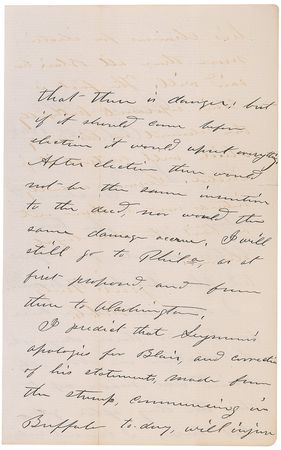 that there is danger; but
if it should come before
election it would upset everything
After election there would
not be the same incentive
to the deed, nor would the
same damage accrue. I will
still go to Phila, as at
first proposed, and from
there to Washington.
I predict that Seymour's
apologies for Blair, and correction
of his statements, made from
the stump, commencing in
Buffalo to-day, will injure